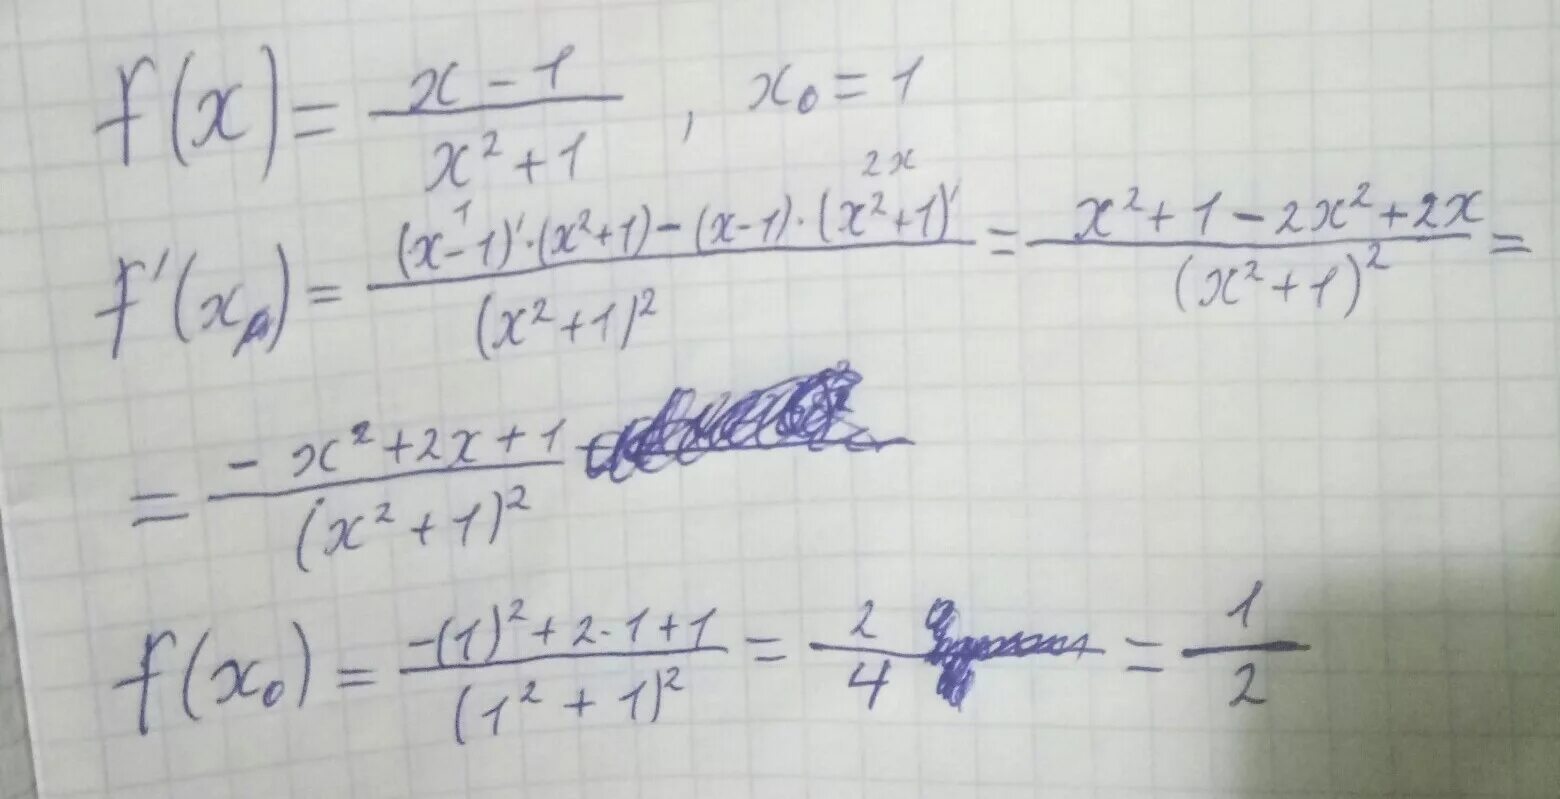 f(x) = (x - 1)/(x² + 1), x₀ = 1
1 2x
f'(x) = ((x-1)'·(x²+1) - (x-1)·(x²+1)')/(x²+1)² = (x²+1-2x²+2x)/(x²+1)² =
= (-x²+2x+1)/(x²+1)²
f(x₀) = (-(1)²+2·1+1)/(1²+1)² = 2/4 = 1/2